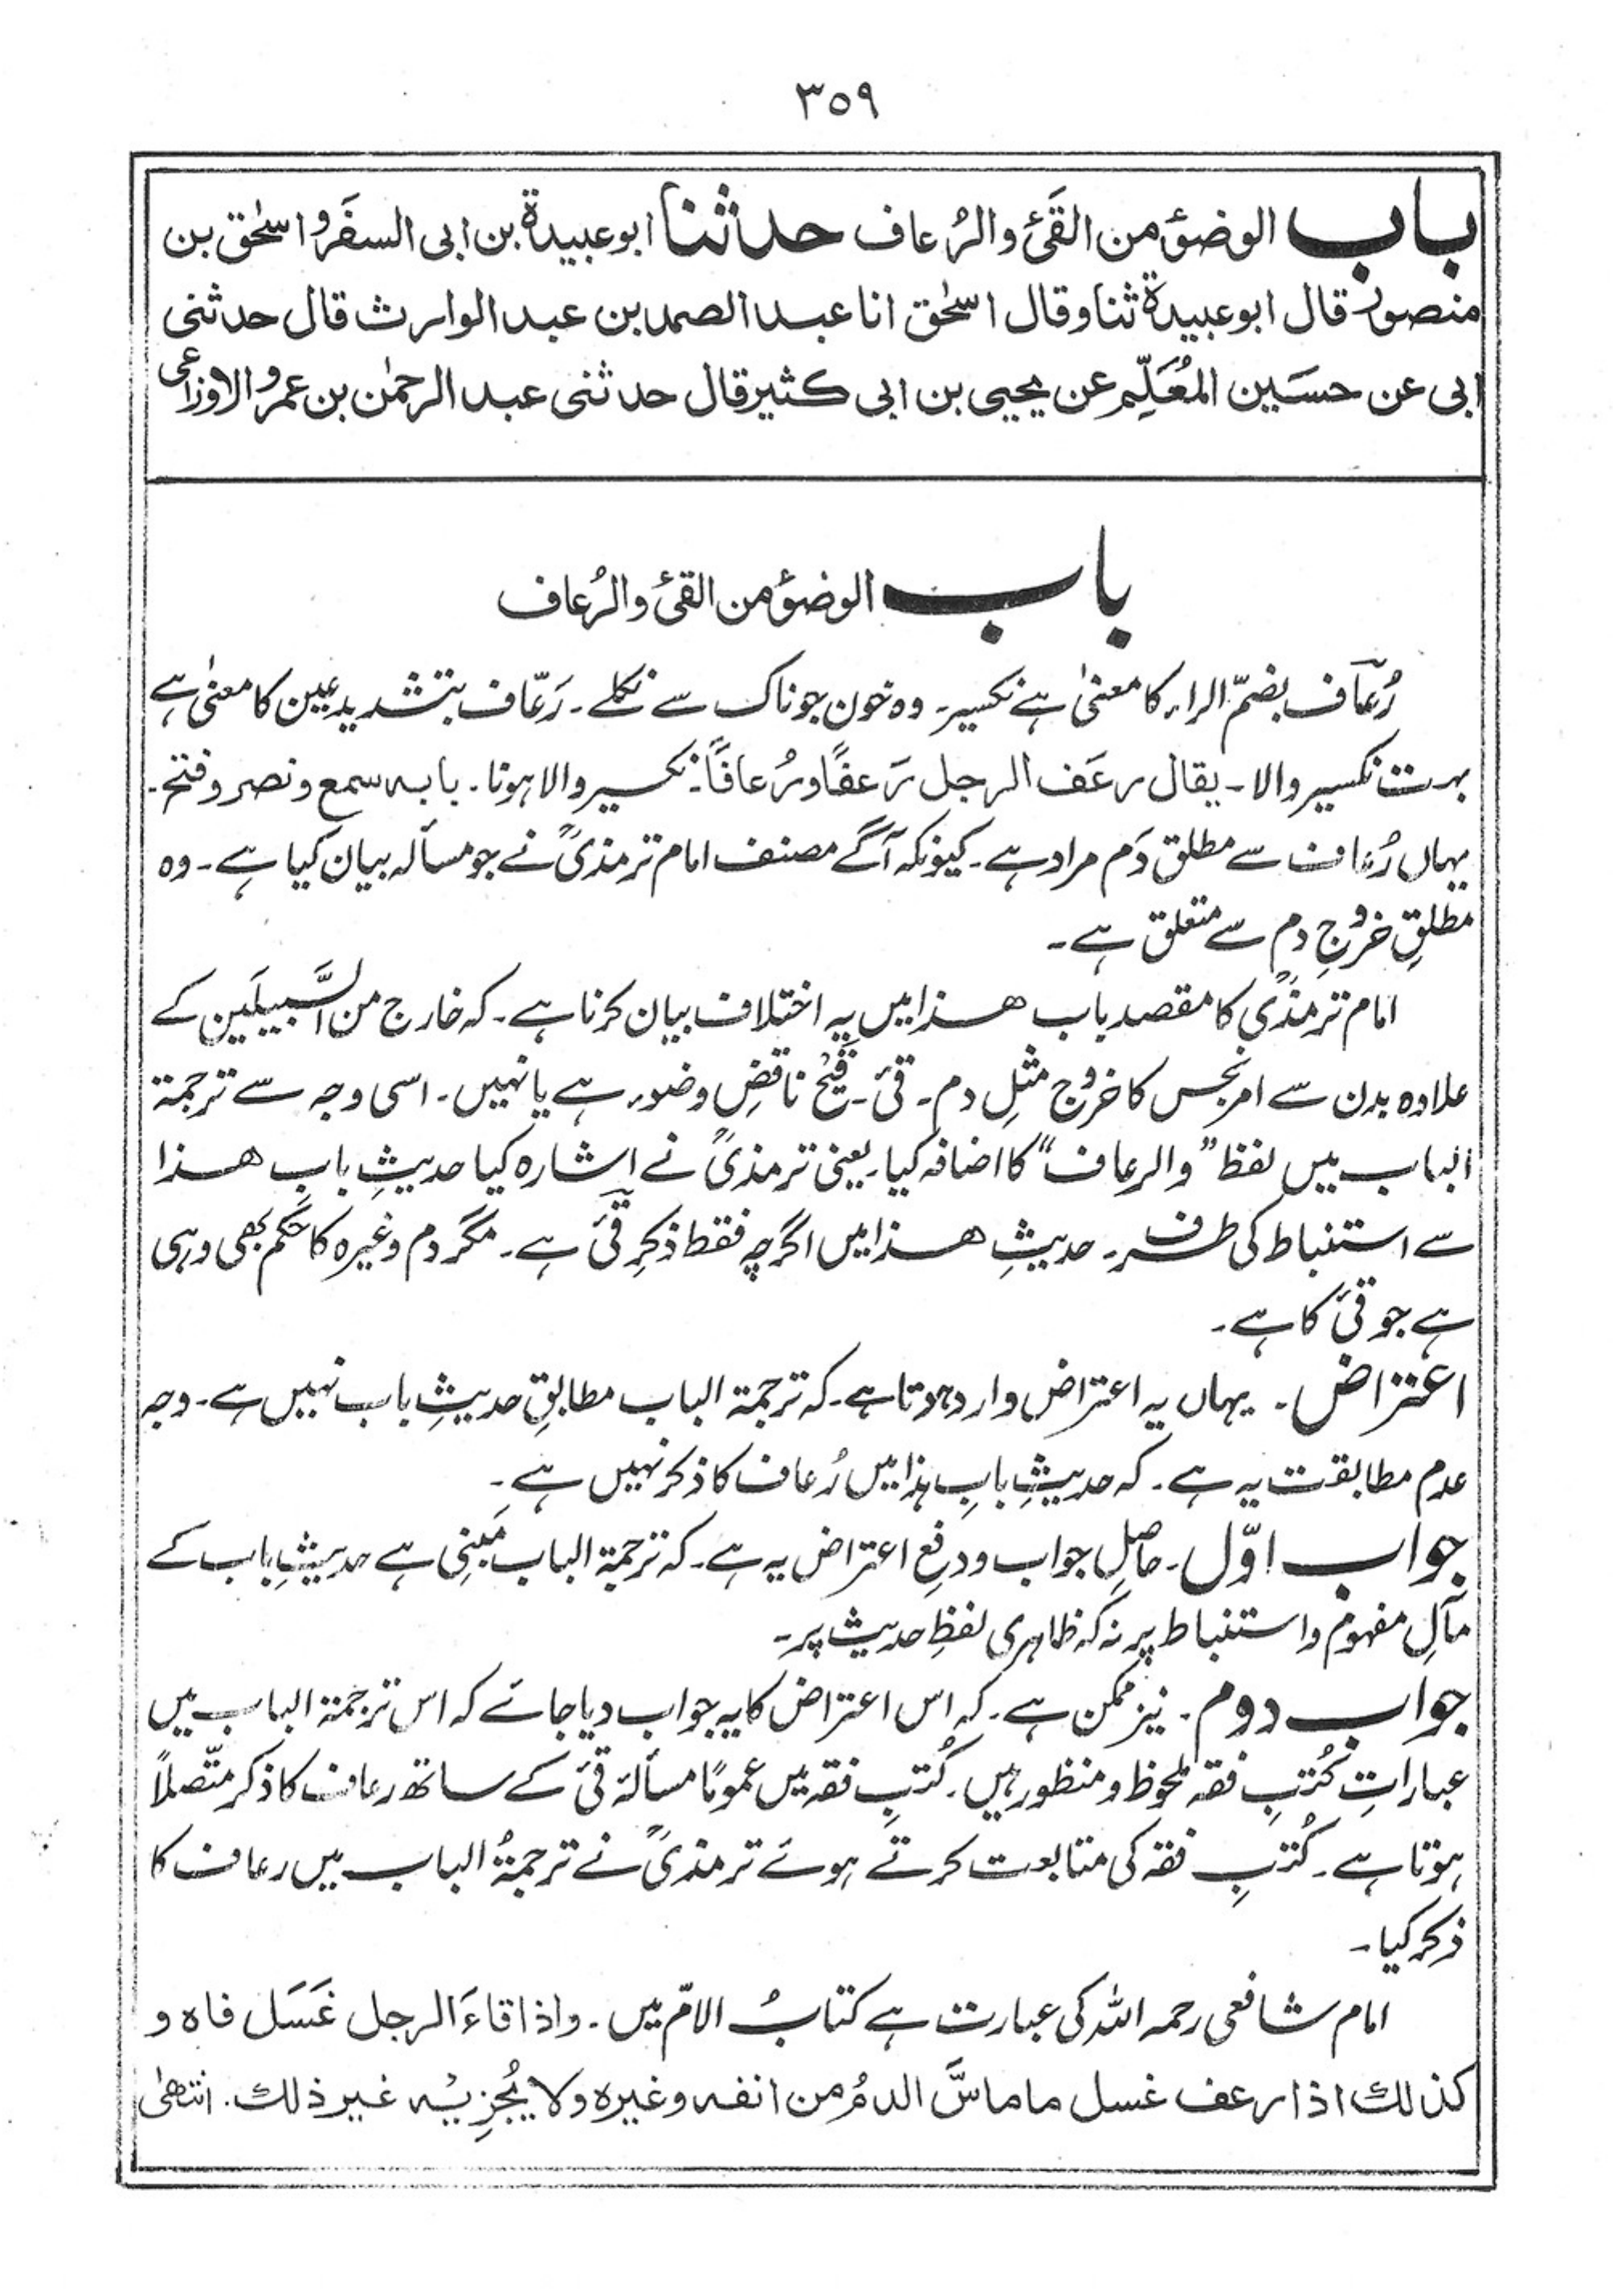 ۳۵۹
باب الوضوٴ من القَئ والرُعاف حدثنا ابوعبیدة بن ابی السفَر واسحٰق بن
منصور قال ابوعبیدة ثنا وقال اسحٰق انا عبد الصمد بن عبد الوارث قال حدثنی
ابی عن حسَین المُعَلِّم عن یحیی بن ابی کثیر قال حدثنی عبد الرحمٰن بن عمرو الاوزاعی
باب الوضوٴ من القئ والرُعاف
رُعَاف بضمّ الراء کا معنیٰ ہے نکسیر۔ وہ خون جو ناک سے نکلے۔ رَعّاف بتشدید عین کا معنیٰ ہے
بہت نکسیر والا۔ یقال رعَف الرجل رَعفًا ورُعافًا۔ نکسیر والا ہونا۔ بابہ سمع و نصر و فتح۔
یہاں رُعاف سے مطلق دَم مراد ہے۔ کیونکہ آگے مصنف امام ترمذیؒ نے جو مسألہ بیان کیا ہے۔ وہ
مطلقِ خروجِ دم سے متعلق ہے۔
امام ترمذیؒ کا مقصد باب ھذا میں یہ اختلاف بیان کرنا ہے۔ کہ خارج من السَّبیلَین کے
علاوہ بدن سے امر نجس کا خروج مثلِ دم۔ قئ۔ قَیْح ناقضِ وضوء ہے یا نہیں۔ اسی وجہ سے ترجمۃ
الباب میں لفظ ”والرعاف“ کا اضافہ کیا۔ یعنی ترمذیؒ نے اشارہ کیا حدیثِ بابِ ھذا
سے استنباط کی طرف۔ حدیثِ ھذا میں اگرچہ فقط ذکرِ قَئ ہے۔ مگر دم وغیرہ کا حکم بھی وہی
ہے جو قئ کا ہے۔
اعتراض۔ یہاں یہ اعتراض وارد ہوتا ہے۔ کہ ترجمۃ الباب مطابقِ حدیثِ باب نہیں ہے۔ وجہ
عدم مطابقت یہ ہے۔ کہ حدیثِ بابِ ہذا میں رُعاف کا ذکر نہیں ہے۔
جواب اوّل۔ حاصلِ جواب و درفعِ اعتراض یہ ہے۔ کہ ترجمۃ الباب مَبنِی ہے حدیثِ باب کے
مآلِ مفہوم و استنباط پر نہ کہ ظاہری لفظِ حدیث پر۔
جواب دوم۔ نیز ممکن ہے۔ کہ اس اعتراض کا یہ جواب دیا جائے کہ اس ترجمۃ الباب میں
عباراتِ کُتبِ فقہ ملحوظ و منظور ہیں۔ کُتبِ فقہ میں عمومًا مسألۂ قئ کے ساتھ رعاف کا ذکر متّصلاً
ہوتا ہے۔ کُتبِ فقہ کی متابعت کرتے ہوئے ترمذیؒ نے ترجمۃُ الباب میں رعاف کا
ذکر کیا۔
امام شافعی رحمہ اللہ کی عبارت ہے کتابُ الامّ میں۔ واذا قاءَ الرجل غَسَل فاہ و
کذلك اذا رعف غسل ما ماسَّ الدمُ من انفہ وغیرہ ولا یُجزِیُہ غیر ذلك۔ انتھیٰ